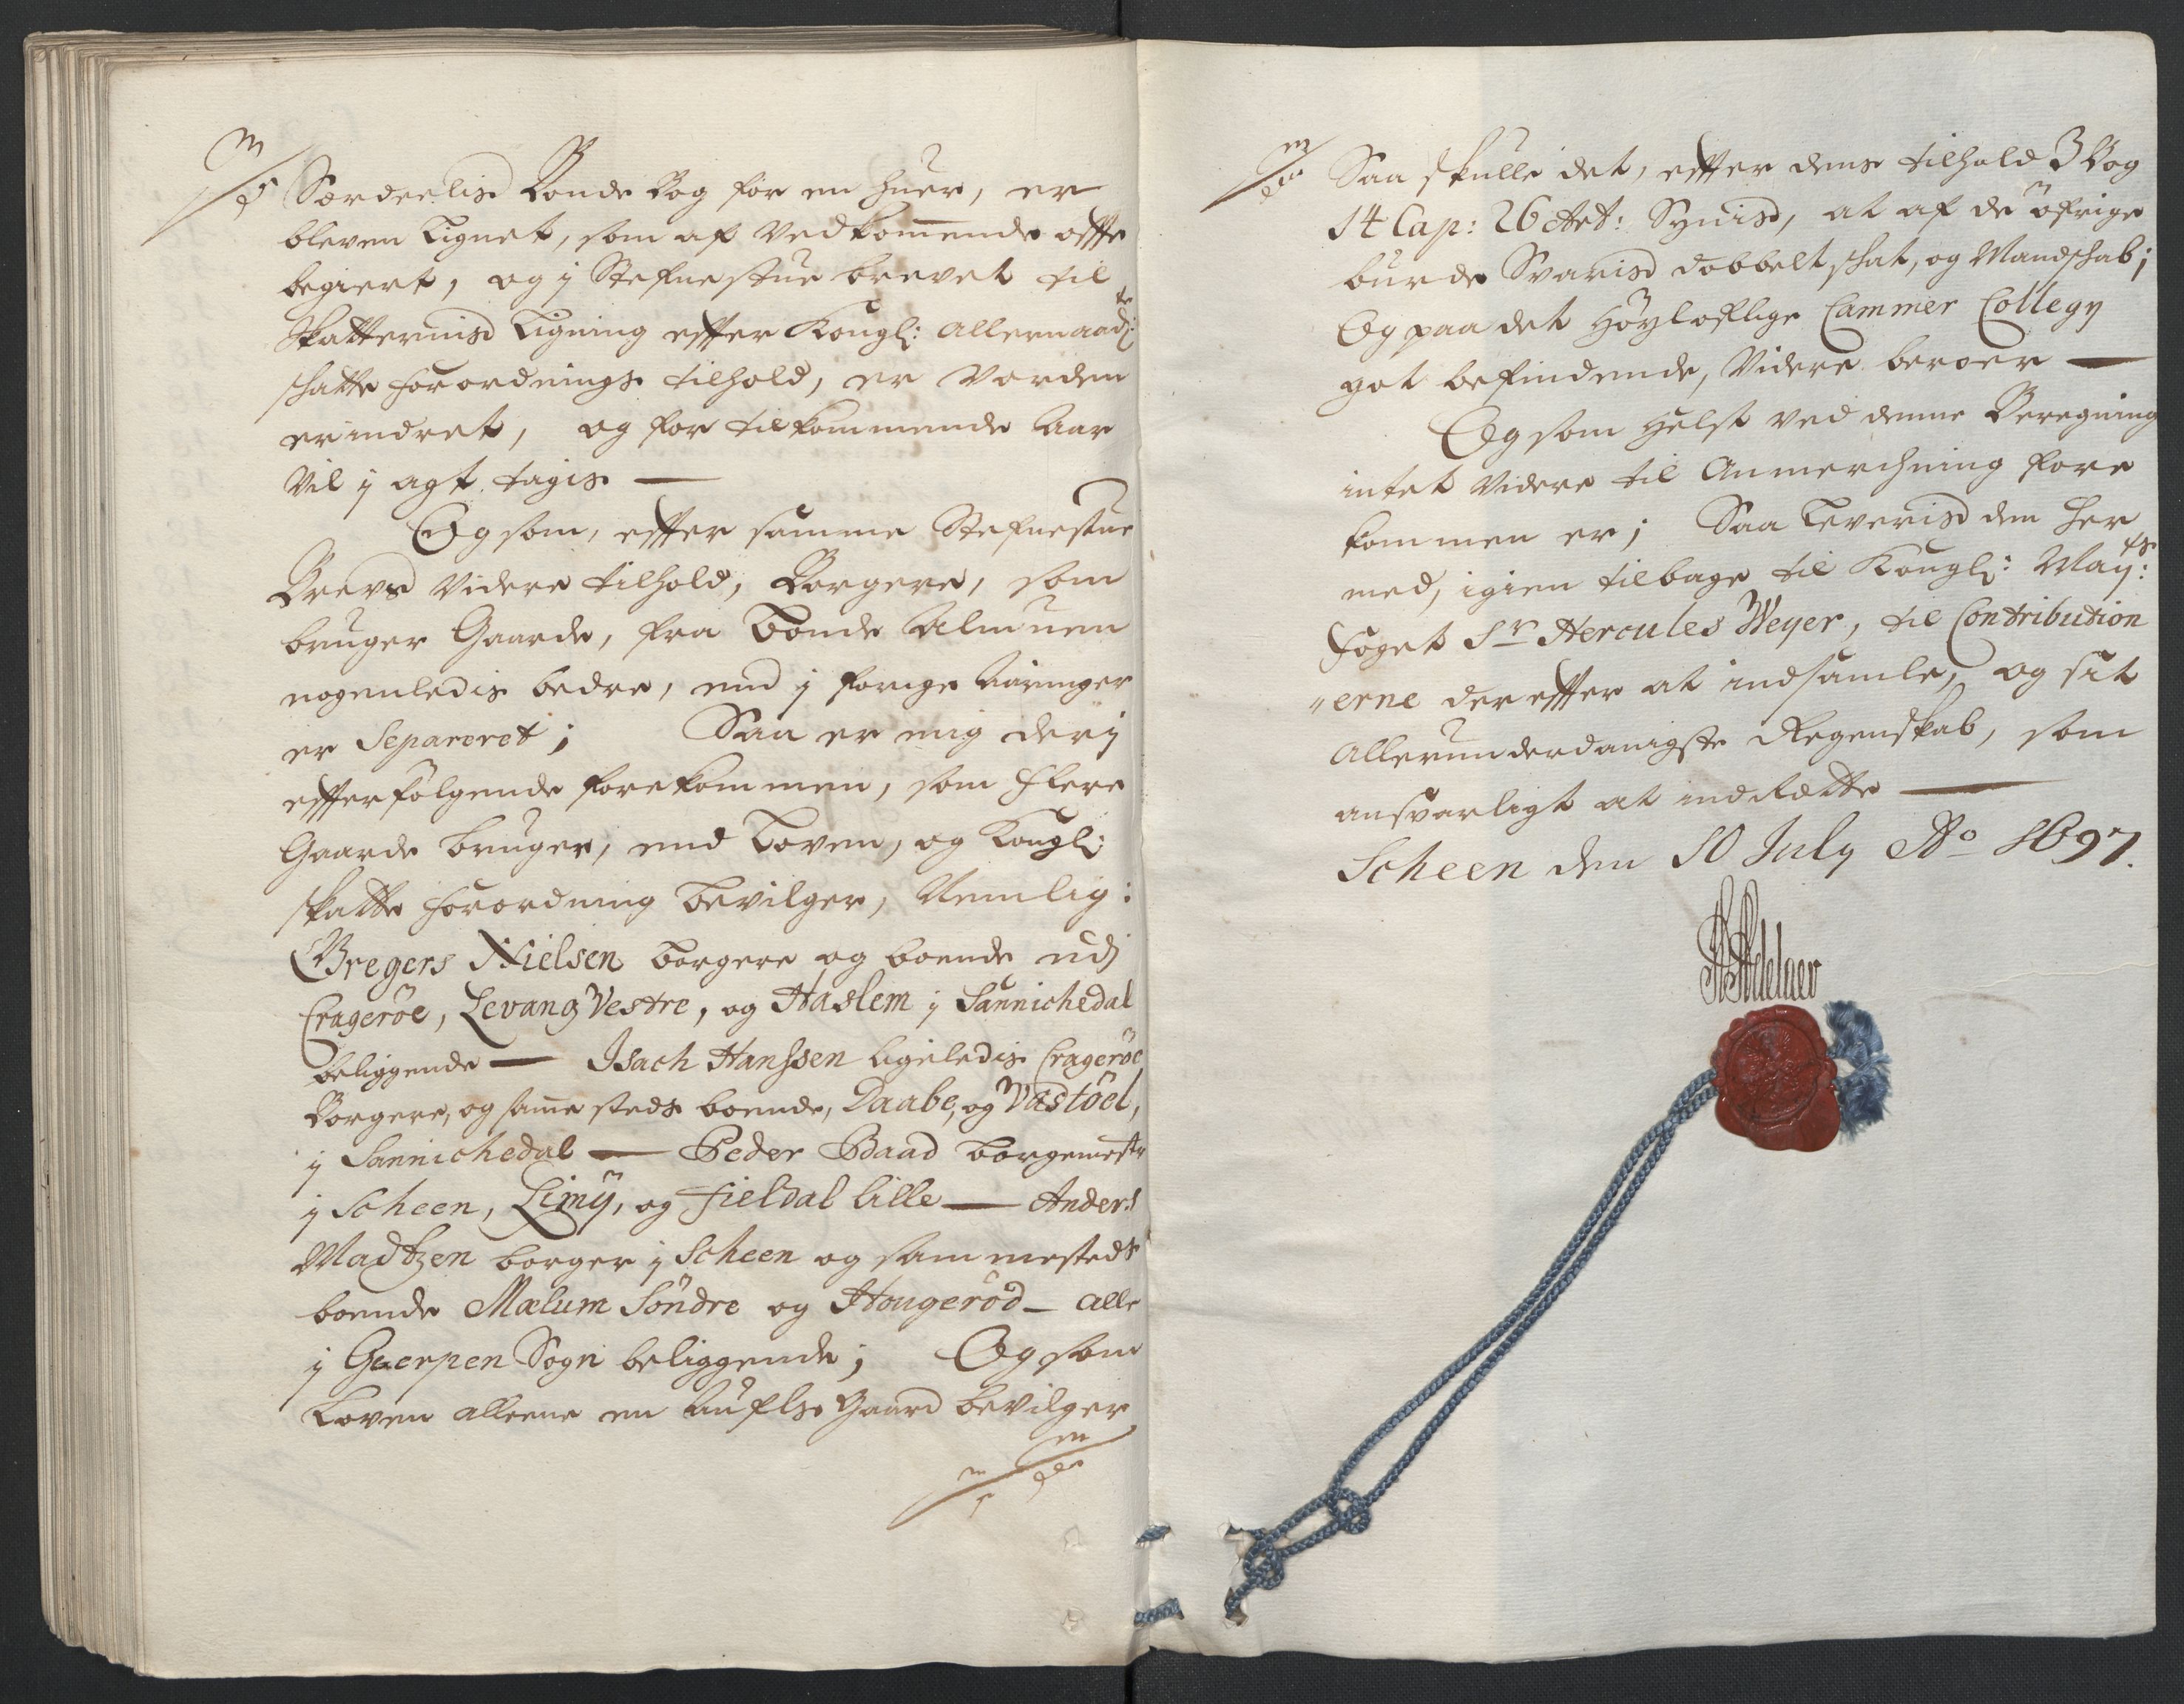 Særdeelis Bonde Bog for en huer, er
bleven Lignet, som af Vedkom̅ende offte
begiert, og j Stefnestue brevet til
Skatternis Ligning effter Kongl: Allernaadte:
schatte forordnings tilhold, er vorden
erindret, og for tilkommende Aar
vil j agt tagis —
Og som, effter samme Stefnestue
Brevs videre tilhold, Borgere, som
bruger Gaarde, fra Bonde Almuen
nogenledis bedre, end j forige Aaringer
er Separeret; Saa er mig derj
effterfølgende forekommen, som flere
Gaarde bruger, end Loven, og Kongl:
skatte forordning bevilger, Nemlig:
Gregers Nielsen borgere og boende udj
Cragerøe, Levang Vestre, og Haslem j Sannichedal
beliggende — Isach Hanssen ligeledis Cragerøe
Borgere, og sam̅e steds boende, Daabe, og Vastöel,
j Sannichedal — Peder Baad borgemestr
j Scheen, Limÿ, og Fieldal lille — Anders
Madtzen borger j Scheen og sammesteds
boende Mælum Söndre og Hougeröd — alle
j Gierpen Sogn beliggende; Og som
Loven alleene en aufls Gaard bevilger
Saa skulle det, effter dens tilhold 3 Bog
14 Cap: 26 Art: Synis, at af de öfrige
burde Svaris dobbelt schat, og Mandschab;
Og paa det Höyloflige Cammer Collegy
got befindende, Videre beroer —
Og som Helst ved denne Beregning
intet Videre til Anmerchning fore
kommen er; Saa Leveris den her
med, igien tilbage til Kongl: Mayts:
foget Sr Hercules Weyer, til Contribution
„erne dereffter at indsamle, og sit
Allerunderdanigste Regenskab, som
ansvarligt at indrætte —
Scheen den 10 July Ao 1697.
Adelaer